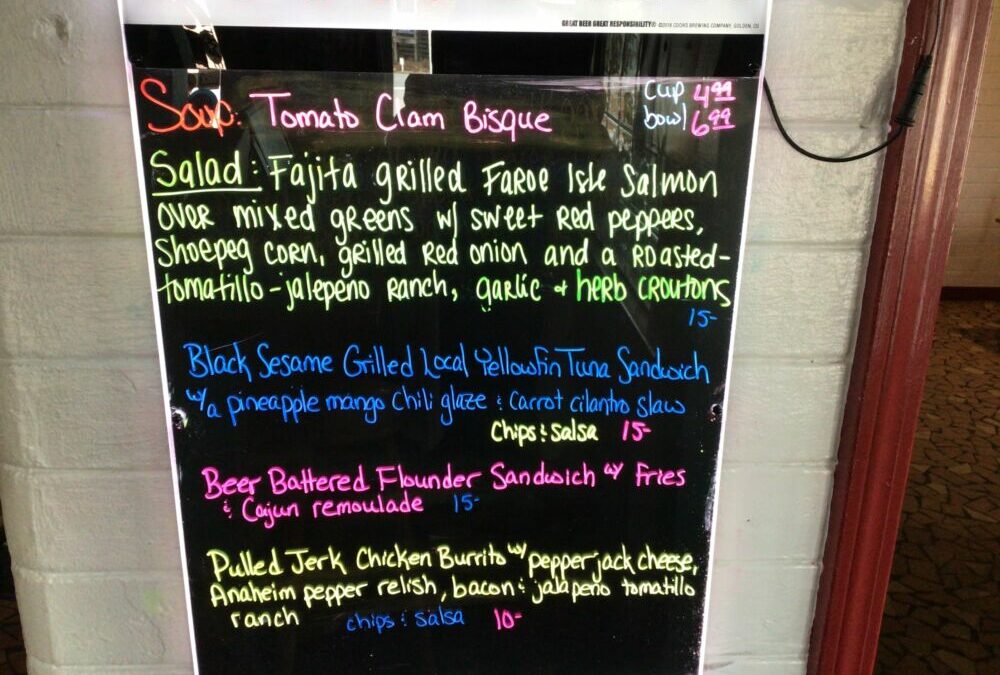 GREAT BEER GREAT RESPONSIBILITY® ©2018 COORS BREWING COMPANY, GOLDEN, CO
Soup: Tomato Clam Bisque cup 4.99
bowl 6.99
Salad: Fajita grilled Faroe Isle Salmon
over mixed greens w/ sweet red peppers,
Shoepeg corn, grilled red onion and a roasted-
tomatillo-jalepeno ranch, garlic + herb croutons
15-
Black Sesame Grilled Local Yellowfin Tuna Sandwich
w/a pineapple mango chili glaze & carrot cilantro slaw
chips & salsa 15-
Beer Battered Flounder Sandwich w/ Fries
& Cajun remoulade 15-
Pulled Jerk Chicken Burrito w/ pepper jack cheese,
Anaheim pepper relish, bacon & jalapeno tomatillo
ranch chips & salsa 10-